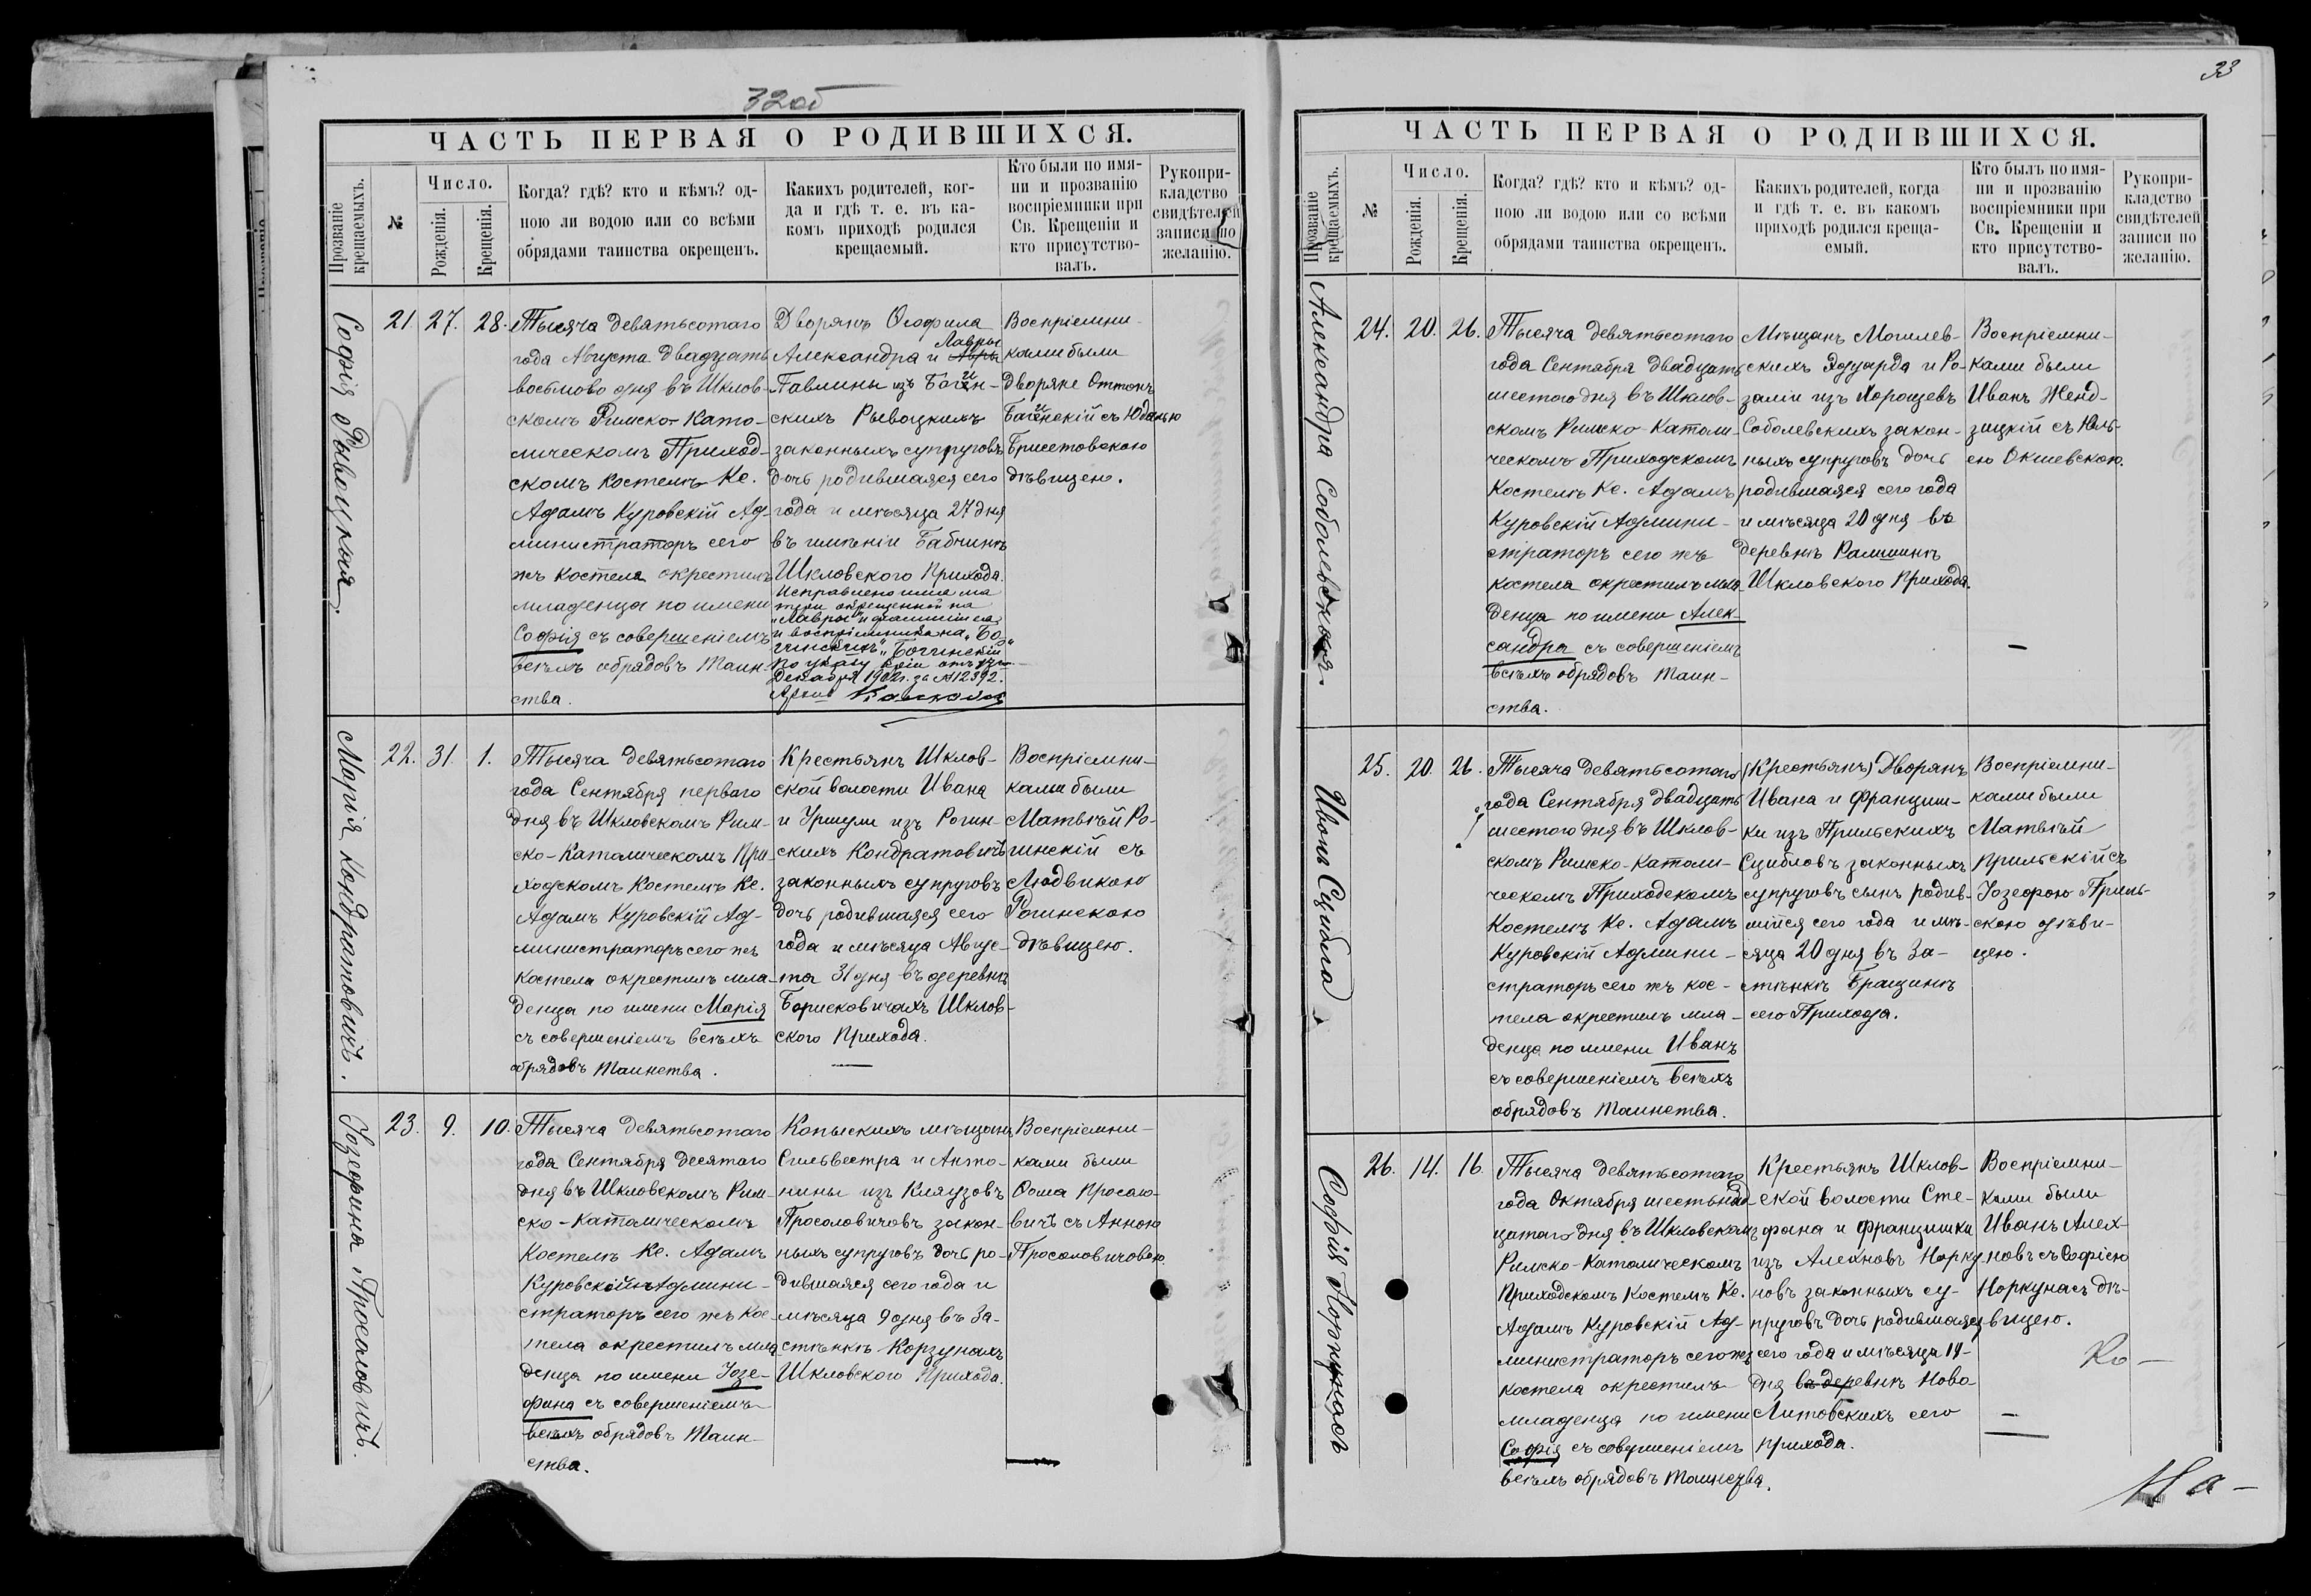 32об
ЧАСТЬ ПЕРВАЯ О РОДИВШИХСЯ.
Прозваніе крещаемыхъ.
№
Число.
Рожденія.
Крещенія.
Когда? гдѣ? кто и кѣмъ? од-
ною ли водою или со всѣми
обрядами таинства окрещенъ.
Какихъ родителей, ког-
да и гдѣ т. е. въ ка-
комъ приходѣ родился
крещаемый.
Кто были по имя-
ни и прозванію
воспріемники при
Св. Крещеніи и
кто присутство-
валъ.
Рукопри-
кладство
свидѣтелей
записи по
желанію.
Софія Рывоцкая.
21. 27. 28.
Тысяча девятьсотаго
года Августа двадцать
восьмово дня въ Шклов-
скомъ Римско-Като-
лическомъ Приход-
скомъ Костелѣ Кс.
Адамъ Куровскій Ад-
министраторъ сего
жъ костела окрестилъ
младенца по имени
Софія съ совершеніемъ
всѣхъ обрядовъ Таин-
ства.
Дворянъ Ѳеофила
Лавры
Александра и
Павлины изъ Багин-
скихъ Рывоцкихъ
законныхъ супруговъ
дочь родившаяся сего
года и мѣсяца 27 дня
въ имѣніи Бабчинѣ
Шкловского Прихода.
Исправлено имя ма
тери окрещенной на
„Лавры" и фамиліи ея
и воспріемника на „Бо
гинскихъ" „Богинскій"
по указу
Декабря 1902 г. за № 12392.
Воспріемни-
ками были
Дворяне Оттонъ
Багинскій съ Юданью
Брисетовскою
дѣвицею.
Марія Кондратовичъ.
22. 31. 1.
Тысяча девятьсотаго
года Сентября перваго
дня въ Шкловскомъ Рим-
ско-Католическомъ При-
ходскомъ Костелѣ Кс.
Адамъ Куровскій Ад-
министраторъ сего жъ
костела окрестилъ мла-
денца по имени Марія
съ совершеніемъ всѣхъ
обрядовъ Таинства.
Крестьянъ Шклов-
ской волости Ивана
и Уршули изъ Рогин-
скихъ Кондратовичъ
законныхъ супруговъ
дочь родившаяся сего
года и мѣсяца Авгус-
та 31 дня въ деревнѣ
Борисковичахъ Шклов-
ского Прихода.
Воспріемни-
ками были
Матвѣй Ро-
гинскій съ
Людвикою
Рогинскою
дѣвицею.
Іозефина Просаловичъ.
23. 9. 10.
Тысяча девятьсотаго
года Сентября десятаго
дня въ Шкловскомъ Рим-
ско-Католическомъ
Костелѣ Кс. Адамъ
Куровскій Админи-
страторъ сего жъ кос-
тела окрестилъ мла
денца по имени Іозе-
фина съ совершеніемъ
всѣхъ обрядовъ Таин-
ства.
Копыскихъ мѣщанъ
Сильвестра и Анто-
нины изъ Княузовъ
Просоловичовъ закон-
ныхъ супруговъ дочь ро-
дившаяся сего года и
мѣсяца 9 дня въ За-
стѣнкѣ Корзунахъ
Шкловского Прихода.
Воспріемни-
ками были
Ѳома Просало-
вичъ съ Анною
Просаловичовою
33
ЧАСТЬ ПЕРВАЯ О РОДИВШИХСЯ.
Прозваніе крещаемыхъ.
№
Число.
Рожденія.
Крещенія.
Когда? гдѣ? кто и кѣмъ? од-
ною ли водою или со всѣми
обрядами таинства окрещенъ.
Какихъ родителей, когда
и гдѣ т. е. въ какомъ
приходѣ родился креща-
емый.
Кто былъ по имя-
ни и прозванію
воспріемники при
Св. Крещеніи и
кто присутство-
валъ.
Рукопри-
кладство
свидѣтелей
записи по
желанію.
Александра Соболевская.
24. 20. 26.
Тысяча девятьсотаго
года Сентября двадцать
шестого дня въ Шклов-
скомъ Римско-Католи-
ческомъ Приходскомъ
Костелѣ Кс. Адамъ
Куровскій Админи-
страторъ сего жъ
костела окрестилъ мла-
денца по имени Алек-
сандра съ совершеніемъ
всѣхъ обрядовъ Таин-
ства.
Мѣщанъ Могилев-
скихъ Эдуарда и Ро-
заліи изъ Хорощевъ
Соболевскихъ закон-
ныхъ супруговъ дочь
родившаяся сего года
и мѣсяца 20 дня въ
деревнѣ Рамшинѣ
Шкловского Прихода.
Воспріемни-
ками были
Иванъ Женд-
зицкій съ Юль-
ею Окшевскою.
Иванъ Сцибло
25. 20. 26.
Тысяча девятьсотаго
года Сентября двадцать
шестого дня въ Шклов-
скомъ Римско-Католи-
ческомъ Приходскомъ
Костелѣ Кс. Адамъ
Куровскій Админи-
страторъ сего жъ кос-
тела окрестилъ мла-
денца по имени Иванъ
съ совершеніемъ всѣхъ
обрядовъ Таинства.
(Крестьянъ) Дворянъ
Ивана и Францишки
ки изъ Прильскихъ
Сцибловъ законныхъ
супруговъ сынъ родив-
шійся сего года и мѣ-
сяца 20 дня въ За-
стѣнкѣ Бращинѣ
сего Прихода.
Воспріемни-
ками были
Матвѣй
Прильскій съ
Іозефою Приль-
скою дѣви-
цею.
Софія Норкунасъ
26. 14. 16.
Тысяча девятьсотаго
года Октября шестьнад-
цатаго дня въ Шкловскомъ
Римско-Католическомъ
Приходскомъ Костелѣ Кс.
Адамъ Куровскій Ад-
министраторъ сего жъ
костела окрестилъ
младенца по имени
Софія съ совершеніемъ
всѣхъ обрядовъ Таинства.
Крестьянъ Шклов-
ской волости Сте-
фана и Францишки
изъ Алехновъ Норку
новъ законныхъ су-
пруговъ дочь родившаяся
сего года и мѣсяца 14-
дня въ деревнѣ Ново-
Литовскихъ сего
прихода.
Воспріемни-
ками были
Иванъ Алех-
новъ съ Софіею
Норкунасъ дѣ-
вицею.
Ко-
На-